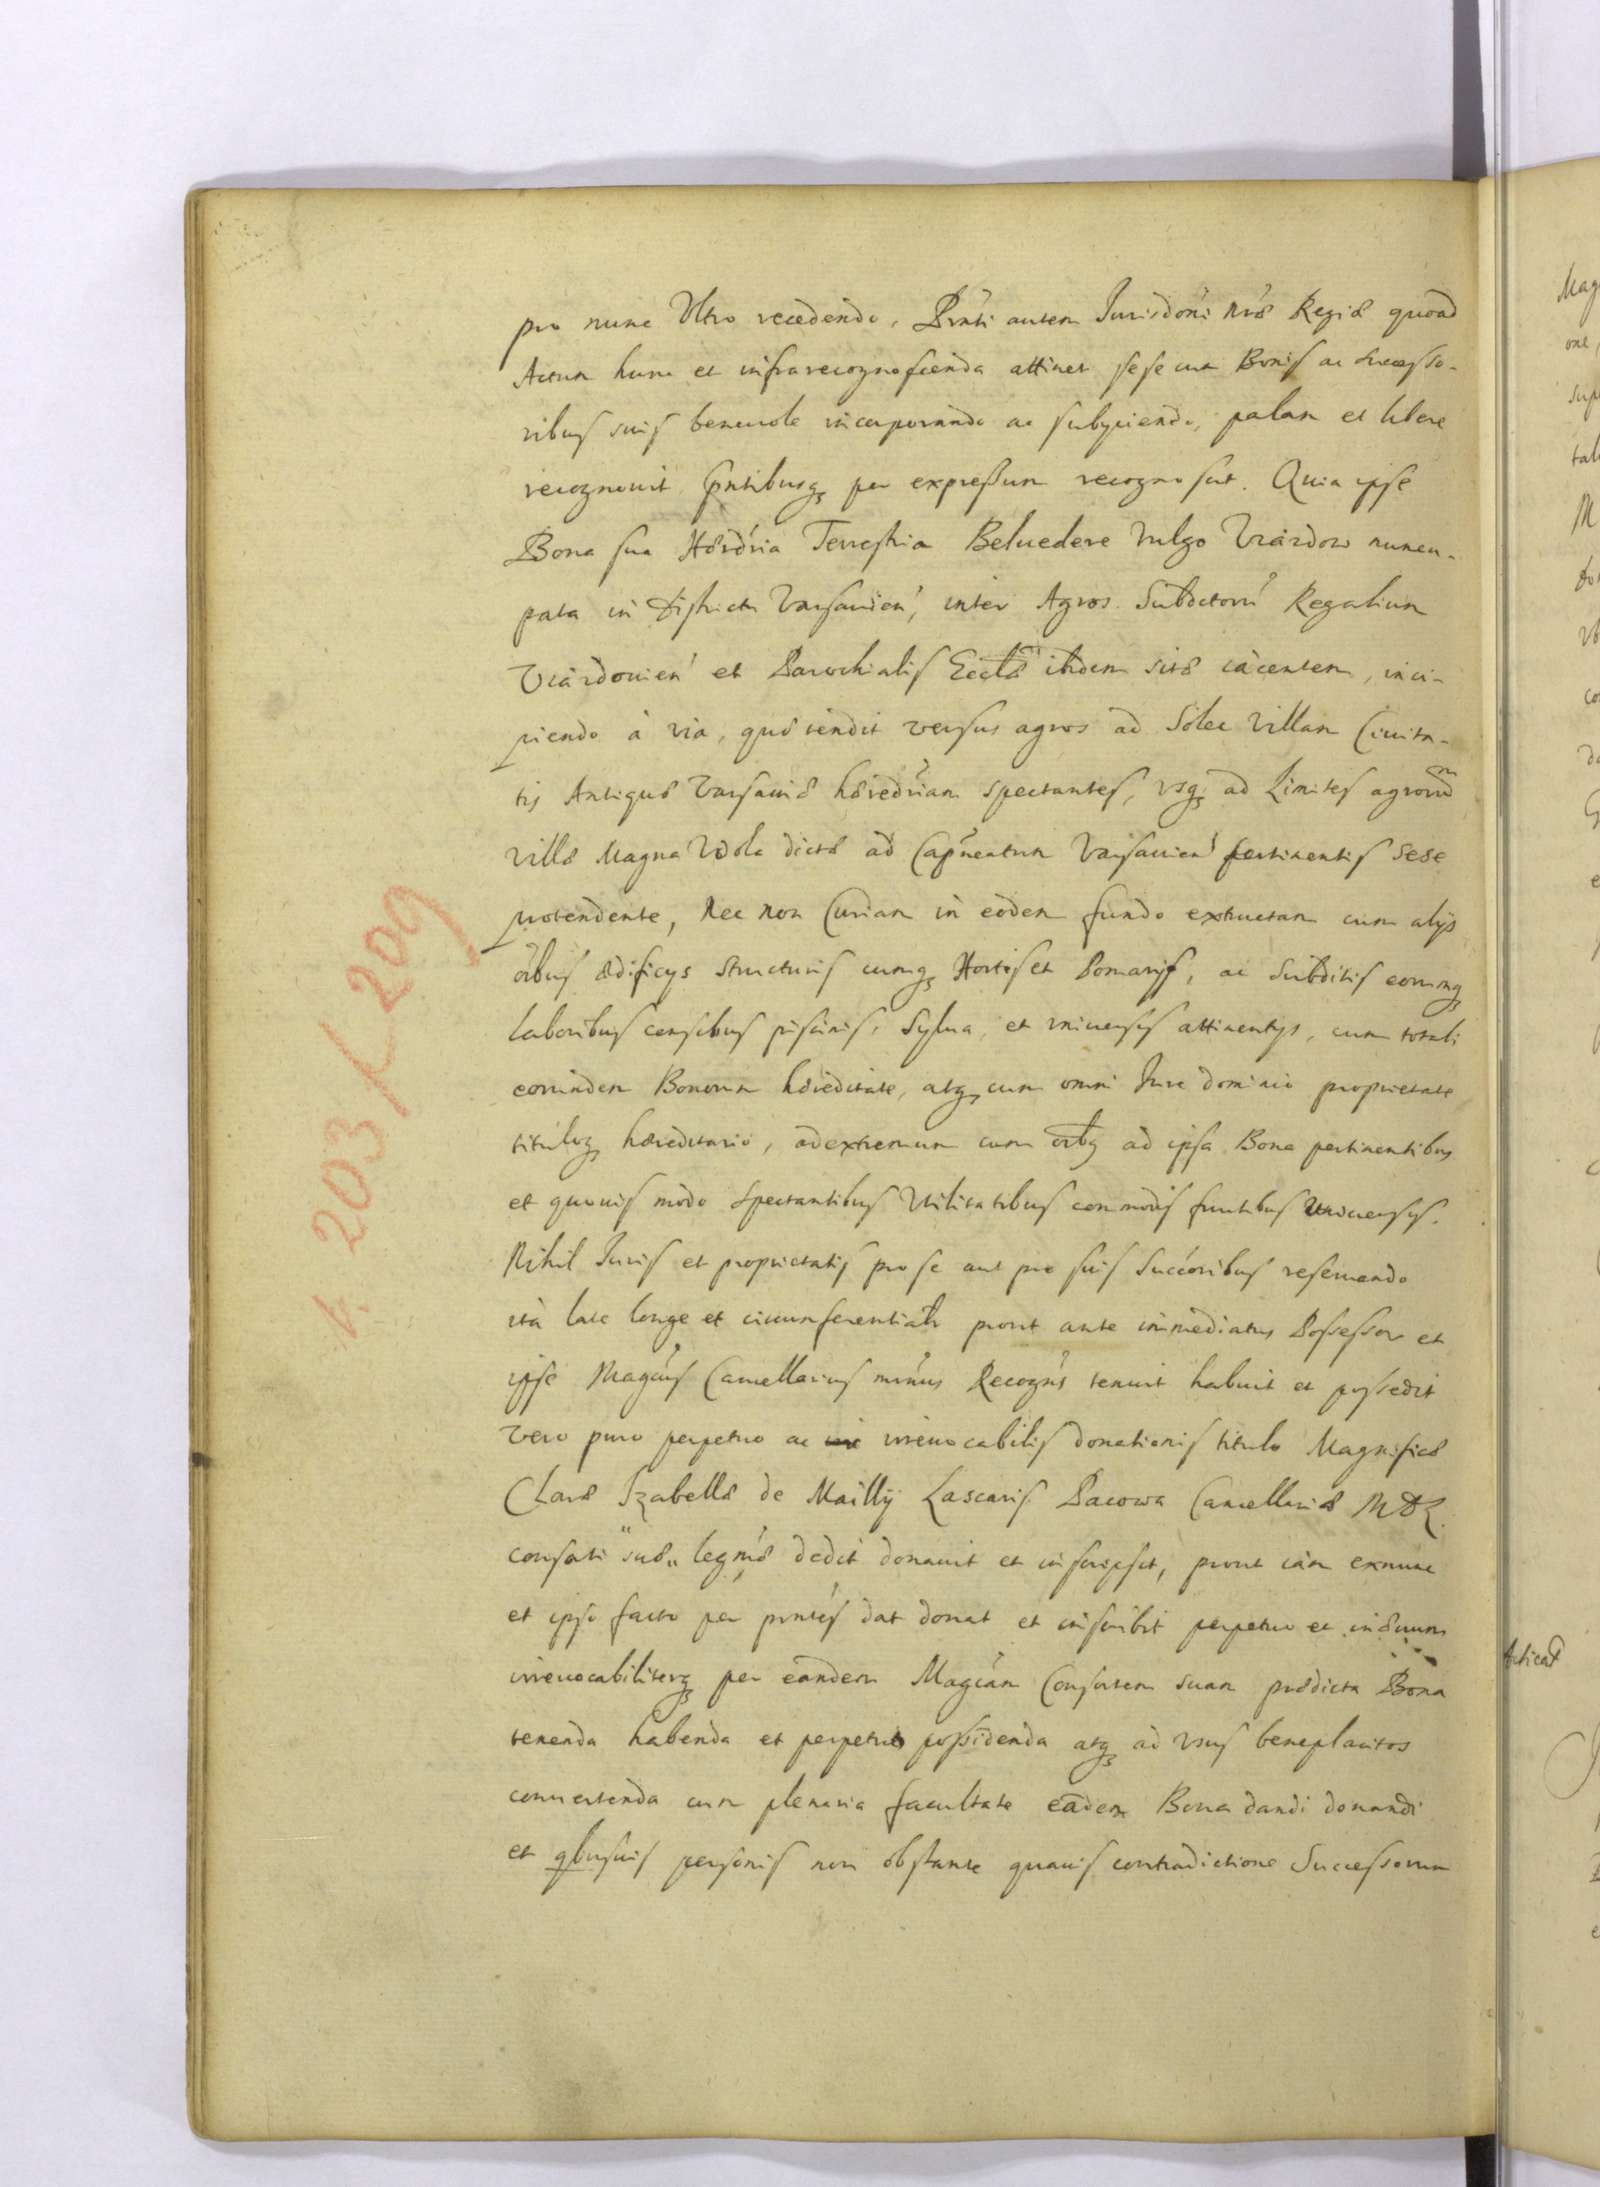 pro nunc Ultro recedendo, Prnti autem Jurisdoni nræ Regiæ quoad
Actum hunc et infrarecognoscenda attinet sese cum Bonis ac Successo-
ribus suis beneuole incorporando ac subyciendo, palam et libere
recognouit pntibusq per expressum recognoscit. Quia ipse
Bona sua Hæredria Terrestria Beluedere vulgo Viazdow nuncu-
pata in Districtu Varsauien, inter Agros Subditorum Regalium
Viazdouien et Parochialis Ecclæ ibidem sitæ iacentem, inci-
piendo à via, quæ tendit versus agros ad Solec villam Ciuita-
tis Antiquæ Varsauiæ hæredriam spectantes, vsq ad Limites agrorum
villæ Magna Wola dictæ ad Capneatum Varsauien pertinentis sese
protendente, Nec non Curiam in eodem fundo extructam cum alijs
oibus ædificys structuris cumq Hortis et Pomarijs, ac Subditis eorumq
laboribus censibus piscinis, Sylua, et vniuersis attinentys, cum totali
eorundem Bonorum hæreditate, atq cum omni Jure dominio proprietate
tituloq hæreditario, adextremum cum oibus ad ipsa Bona pertinentibus
et quouis modo spectantibus Vtilitatibus commodis fructibus Vniuersis.
Nihil Juris et proprietatis pro se aut pro suis Succoribus reseruando
ità late longe et circumferentialr prout ante immediatus Possessor et
ipse Magcus Cancellarius minus Recogns tenuit habuit et possedit
vero puro perpetuo ac irreuocabilis donationis titulo Magnificæ
Claræ Izabellæ de Mailly Lascaris Pacowa Cancellariæ MDL
consorti suæ legmæ dedit donauit et inscripsit, prout iàm exnunc
et ipso facto per prntes dat donat et inscribit perpetuo et in æuum
irreuocabiliterq per eandem Magcam Consortem suam prædicta Bona
tenenda habenda et perpetuo possidenda atq ad vsus beneplacitos
conuertenda cum plenaria facultate eadem Bona dandi donandi
et qbusuis personis non obstante quauis contradictione Successorum
k. 203 / 209
Acticat